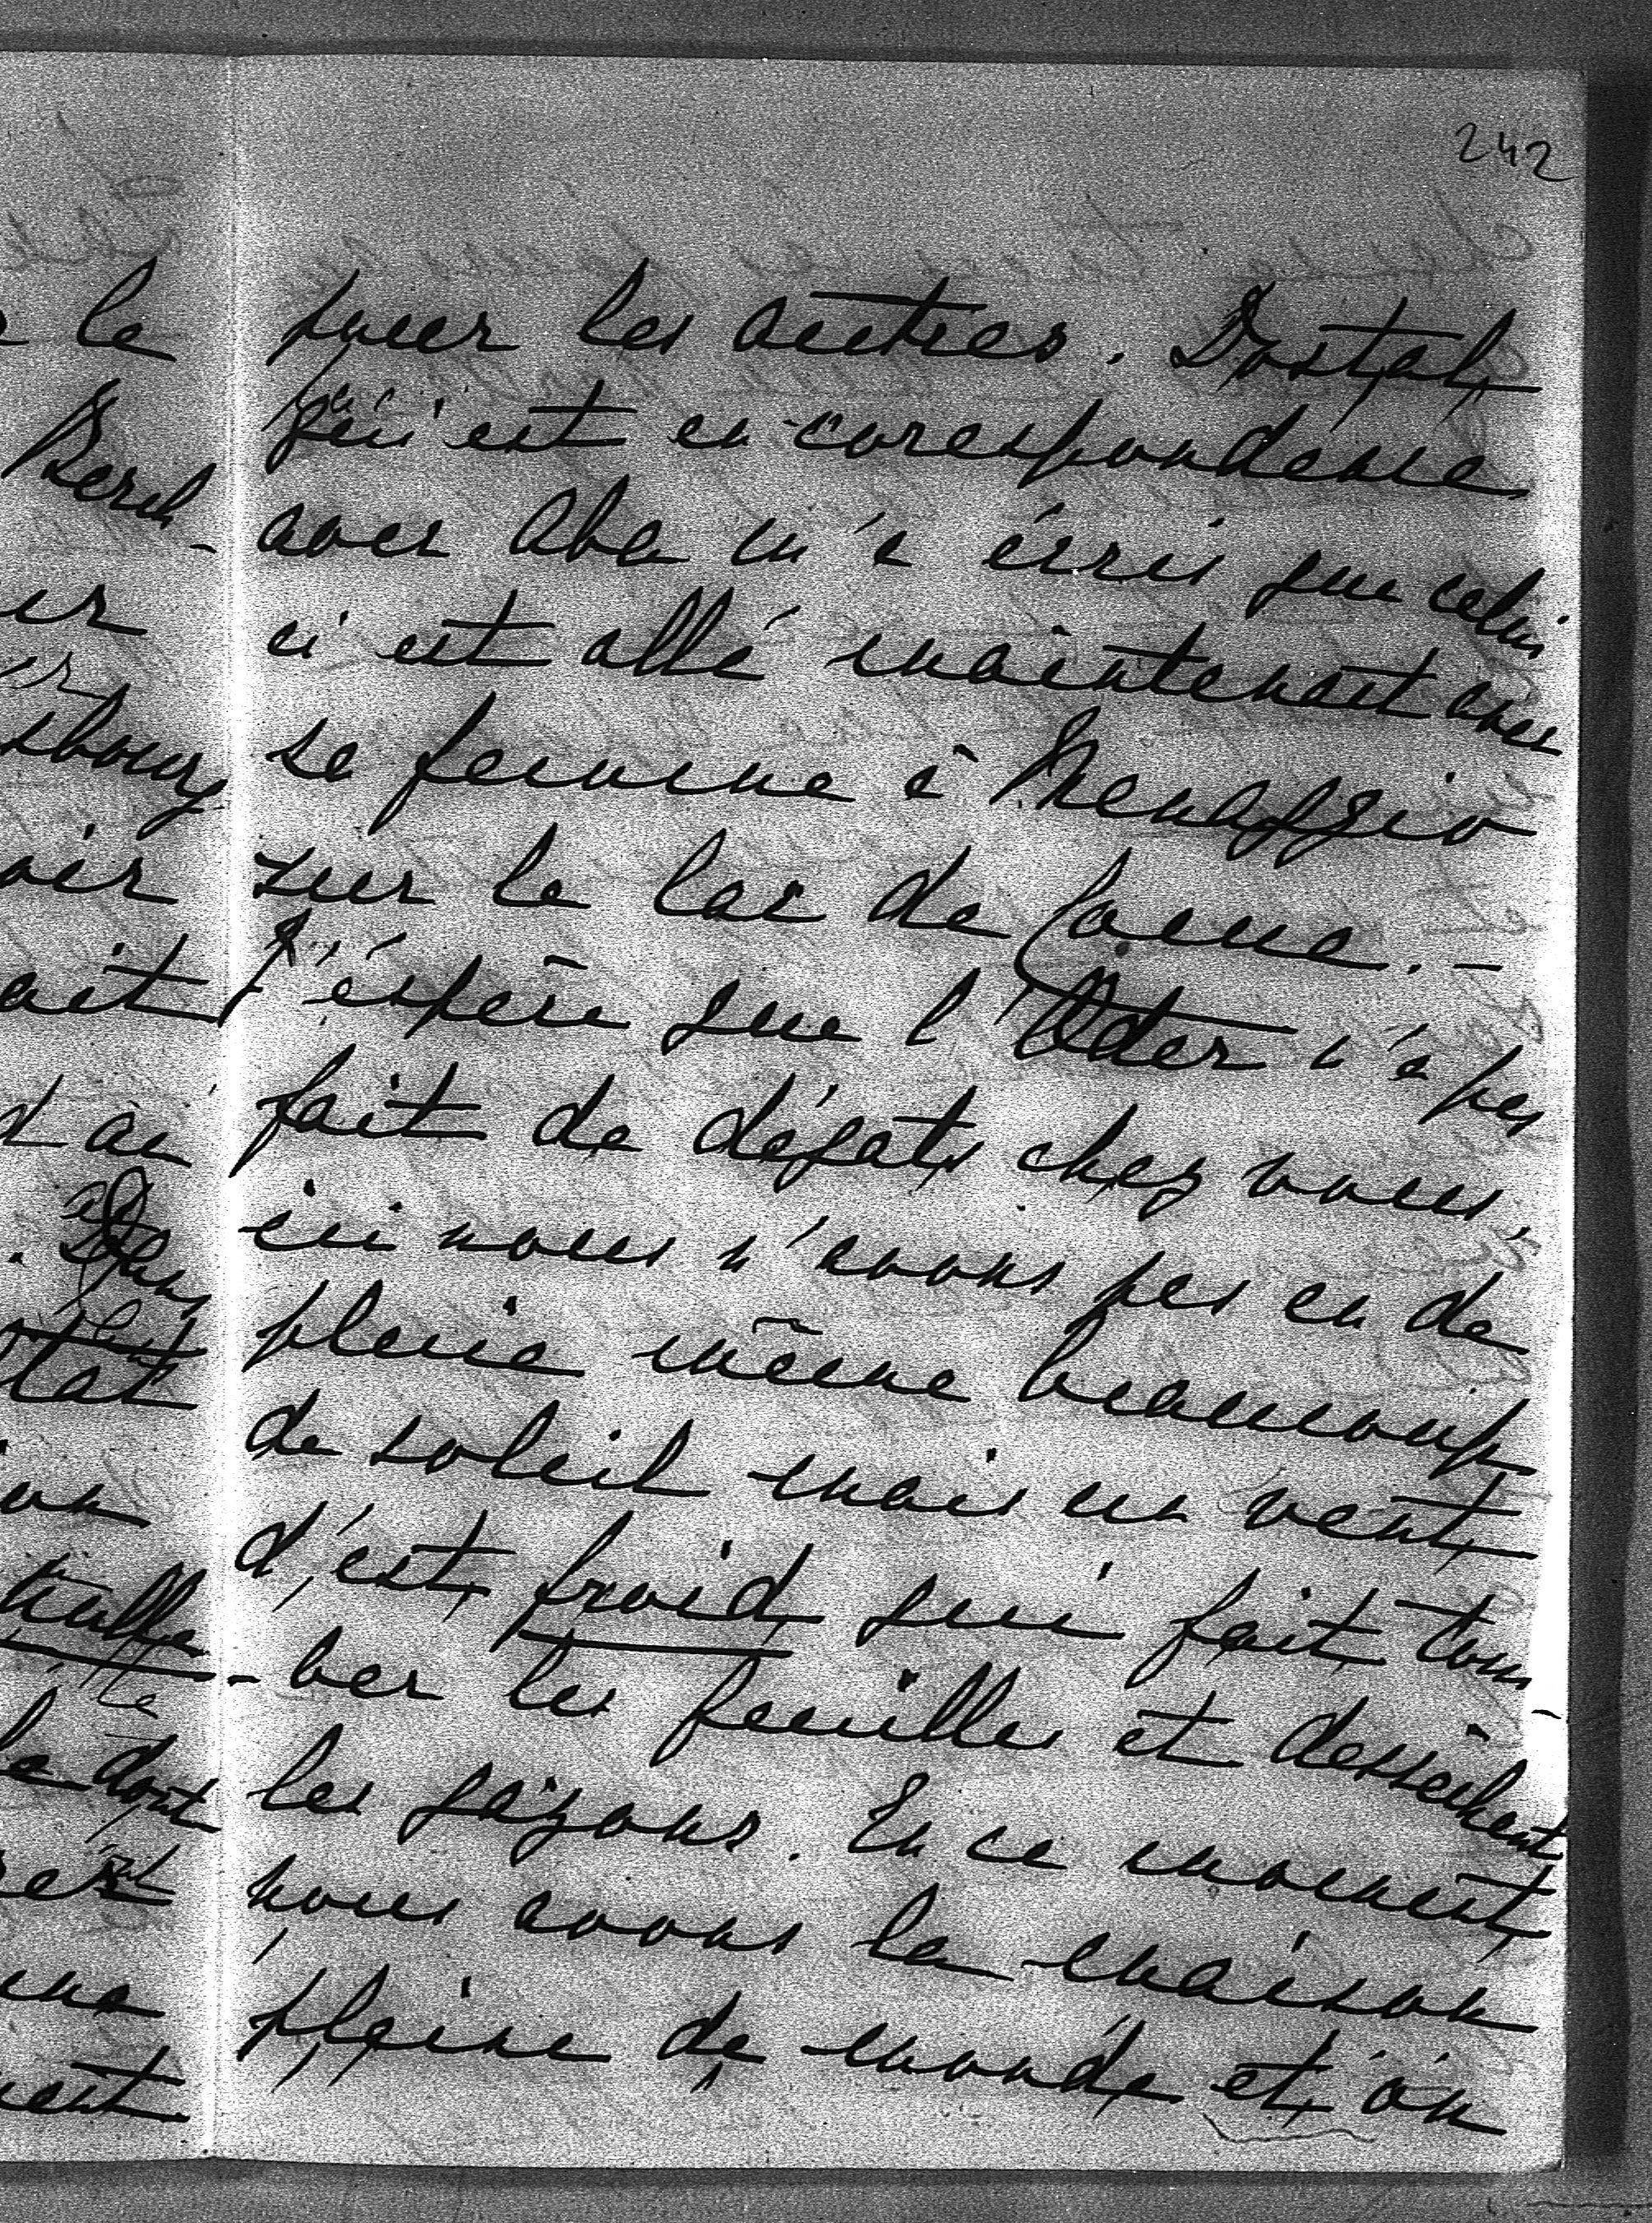 242
pour les autres. Dostal
qui est en corespondence
avec Aba m'a écris que celui
ci est allé maintenant avec
sa femme à Menaggio
sur le lac de Come. –
J'éspère que l'Oder n'a pas
fait de dégats chez vous,
ici nous n'avons pas eu de
pluie même beaucoup
de soleil mais un vent
d'est froid qui fait tom-
ber les feuilles et dessechent
les gazons. En ce moment
nous avons la maison
pleine de monde et on